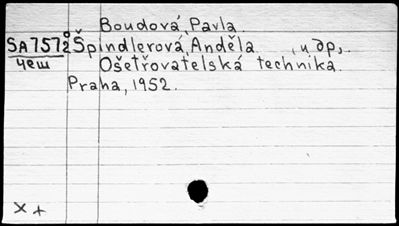 Boudová, Pavla
SA7572 Špindlerová, Anděla и др.
чеш Ošetřovatelská technika.
Praha, 1952.
x +